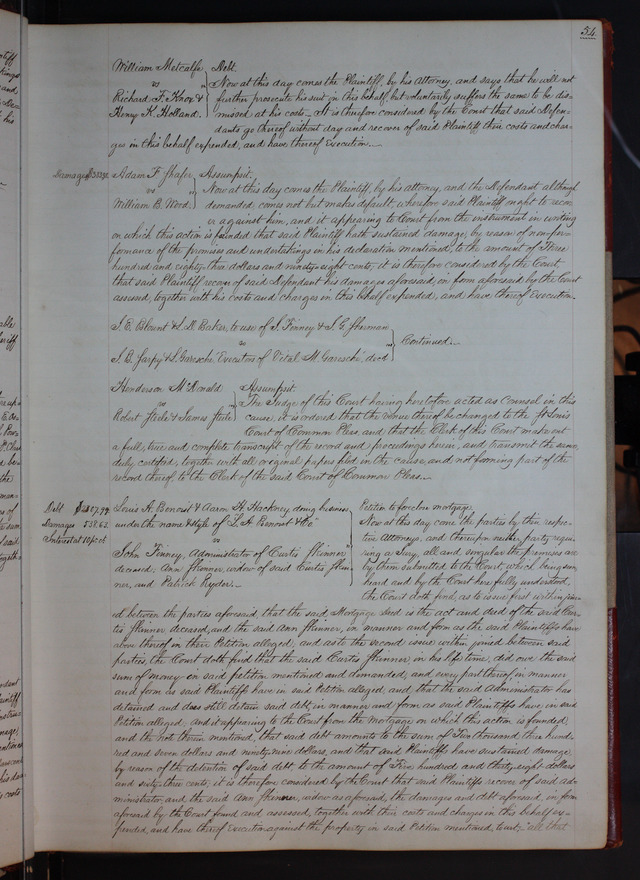 54
William Metcalfe } Debt.
vs " Now at this day comes the Plaintiff, by his Attorney, and says that he will not
Richard F. Knox & further prosecute his suit in this behalf, but voluntarily suffers the same to be dis-
Henry K. Holland. missed at his costs. It is therefore considered by the Court that said Defen-
dants go thereof without day and recover of said Plaintiff their costs and char-
ges in this behalf expended, and have thereof Execution.
Damages $383.98. Adam F Shafer } Assumpsit.
vs " Now at this day comes the Plaintiff, by his attorney, and the Defendant although
William B. Wood. demanded, comes not but makes default; wherefore said Plaintiff ought to recov
er against him, and it appearing to Court from the instrument in writing
on which this action is founded that said Plaintiff hath sustained damage, by reason of non-per-
formance of the promises and undertakings in his declaration mentioned, to the amount of Three
hundred and eighty three dollars and ninety-eight cents, it is therefore considered by the Court
that said Plaintiff recover of said Defendant his damages aforesaid, in form aforesaid by the Court
assessed, together with his costs and charges in this behalf expended, and have thereof Execution.
& S. D. Baker to use of J. Finney & S. G. Sherman
vs " } Continued.
J. B. Sarpy & Garesche, Executors of Vital M. Garesche, decd
Henderson McDonald } Assumpsit
vs " The Judge of this Court having heretofore acted as Counsel in this
Robert Steele & James Steele cause, it is ordered that the venue thereof be changed to the St Louis
Court of Common Pleas, and that the Clerk of this Court make out
a full, true and complete transcript of the record and proceedings herein, and transmit the same,
duly certified, together with all original papers filed in the cause, and not forming part of the
record thereof, to the Clerk of the said Court of Common Pleas.
Debt Louis A. Benoist & Aaron H. Hackney doing business Petition to foreclose mortgage.
Damages 538.63. under the name & style of "L. A. Benoist & Co" Now at this day come the parties by their respec-
Interest at 10 pr ct vs tive Attorneys, and thereupon neither party requi-
John Finney, Administrator of Curtis Skinner " ring a Jury, all and singular the premises are
deceased; Ann Skinner, widow of said Curtis Skin- by them submitted to the Court, which being seen
ner, and Patrick Ryder. heard and by the Court here fully understood,
the Court doth find, as to issue first within join-
ed between the parties aforesaid that the said Mortgage deed is the act and deed of the said Cur-
tis Skinner deceased, and the said Ann Skinner, in manner and form as the said Plaintiffs have
above thereof in their Petition alleged; and as to the second issue within joined between said
parties, the Court doth find that the said Curtis Skinner in his life time, did owe the said
sum of money in said petition mentioned and demanded, and every part thereof in manner
and form as said Plaintiffs have in said Petition alleged, and that the said Administrator has
detained and does still detain said debt, in manner and form as said Plaintiffs have in said
Petition alleged; and it appearing to the Court from the Mortgage on which this action is founded,
and the note therein mentioned, that said debt amounts to the sum of Two thousand three hund
red and seven dollars and ninety-nine dollars, and that said Plaintiffs have sustained damage
by reason of the detention of said debt, to the amount of Five hundred and thirty eight dollars
and sixty-three cents, it is therefore considered by the Court that said Plaintiffs recover of said ad-
ministrator, and the said Ann Skinner, widow as aforesaid, the damages and debt aforesaid, in form
aforesaid by the Court found and assessed, together with their costs and charges in this behalf ex-
pended, and have thereof Execution against the property in said Petition mentioned, to wit; "all that